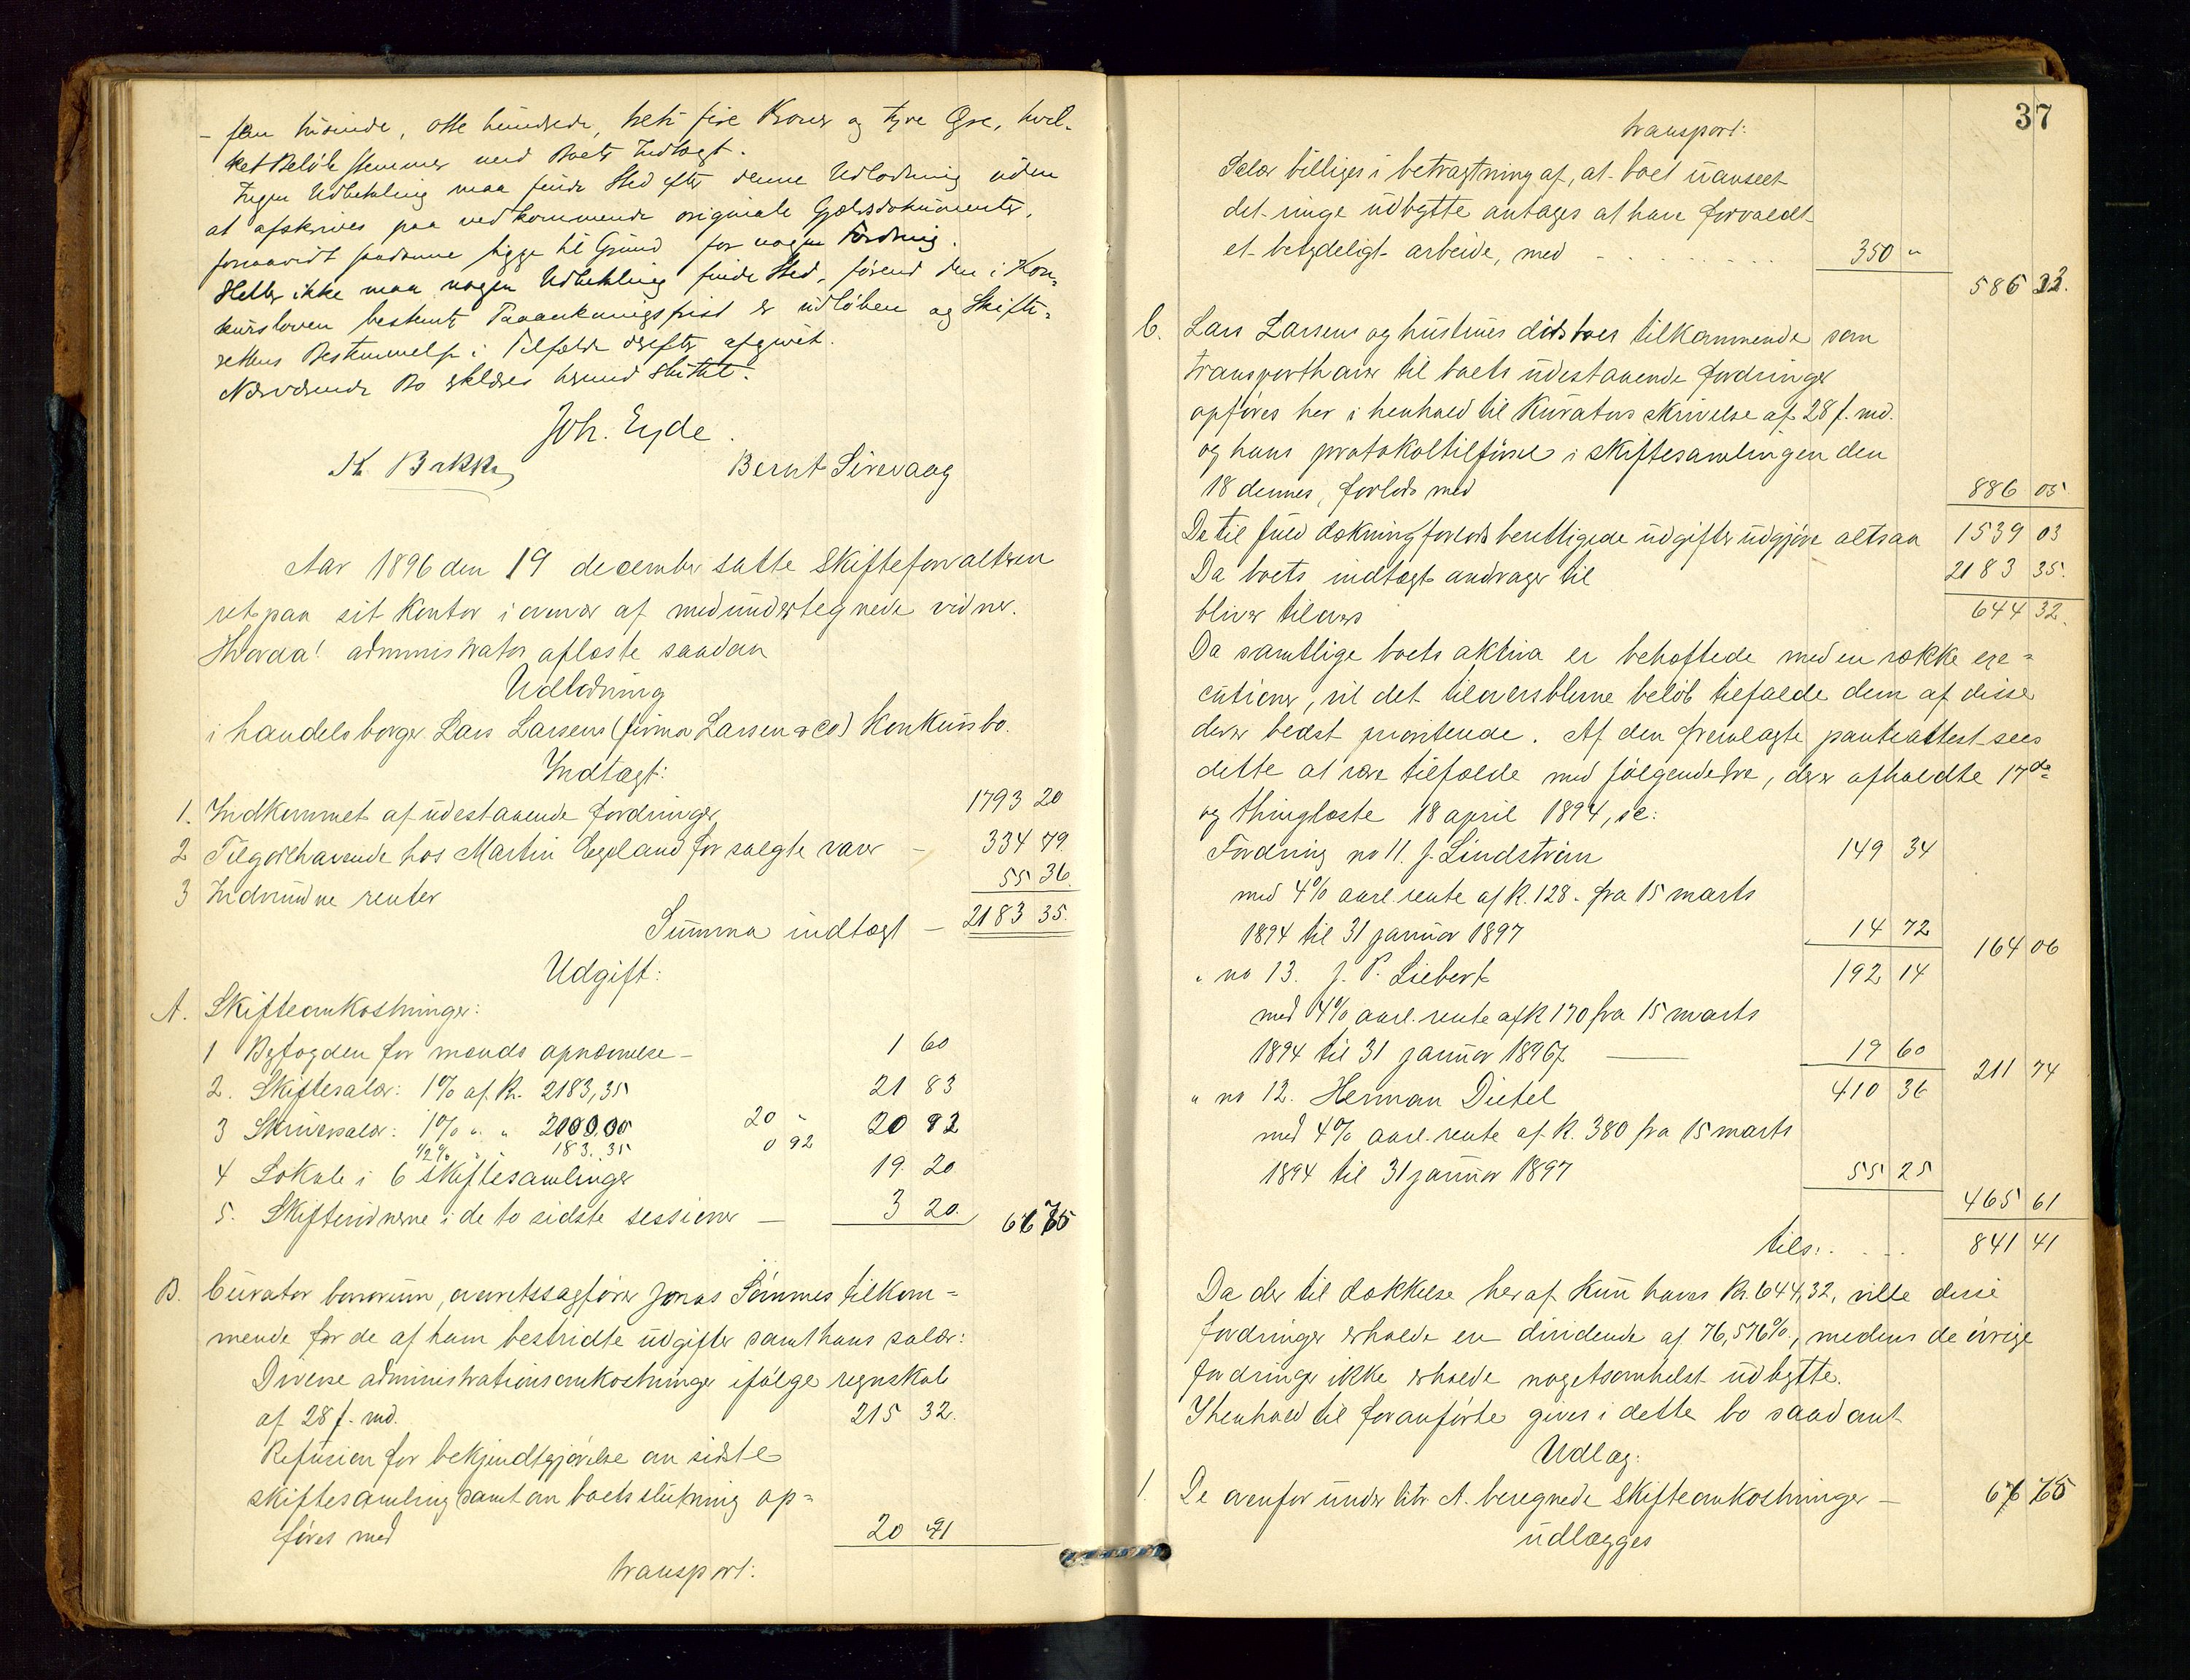 - fem tusinde, otte hundrede, treti fire Kroner og tyve Øre, hvil-
ket Beløb stemmer med Boets Indtægt.
Ingen Udbetaling maa finde Sted efter denne Udlodning uden
at afskrives paa vedkommende originale Gjældsdokumenter,
forsaavidt saadanne ligge til Grund for nogen Fordring.
Heller ikke maa nogen Udbetaling finde Sted, førend den i Kon-
kursloven bestemte Paaankningsfrist er udløben og Skifte-
rettens Bestemmelse i Tilfælde derefter afgivet.
Nærværende Bo erklæres herved sluttet.
Joh. Eyde.
Bernt Sirevaag
Aar 1896 den 19 december satte skifteforvalteren
ret paa sit kontor i overvær af medundertegnede vidner.
Hvorda! administrator aflæste saadan
Udlodning
i handelsborger Lars Larsens (firma Larsen & Co) konkursbo.
Indtægt:
1. Indkommet af udestaaende fordringer 1793 20
2 Tilgodehavende hos Martin Egeland for solgte varer - 334 79.
3 Indvundne renter 55 36.
Summa indtægt - 2183 35.
Udgift:
A. Skifteomkostninger:
1 Byfogden for mænds opnævnelse - 1 60
2. Skiftesalær: 1% af Kr. 2183,35 21 83
3 Skriversalær: 1% " " 2000,00 20 " 20 92
1/2% " " 183.35 0 92
4 Lokale i 6 skiftesamlinger 19. 20
5. Skiftevidnerne i de to sidste sessioner - 3 20. 66 75
B. Curator bonorum, overretssagfører Jonas Sømmes tilkom-
mende for de af ham bestridte udgifter samt hans salær:
Diverse administrationsomkostninger ifølge regnskab
af 28 f. md. 215 32.
Refusion for bekjendtgjørelse om sidste
skiftesamling samt om boets slutning op-
føres med 20 91
transport:
37
transport:
Salær billiges i betragtning af, at boet uanseet
det ringe udbytte antages at have forvoldt
et betydeligt arbeide, med - . . . . . . 350 "
586 23.
C. Lars Larsens og hustrues dødsboes tilkommende som
transporthaver til boets udestaaende fordringer
opføres her i henhold til kurators skrivelse af 28 f. md.
og hans protokoltilførsel i skiftesamlingen den
18 dennes, forlods med 886 05
De til fuld dækning forlods berettigede udgifter udgjøre altsaa 1539 03
Da boets indtægt andrager til 2183 35.
bliver tilovers 644 32.
Da samtlige boets aktiva er behæftede med en række exe-
cutioner, vil det tiloversblevne beløb tilfalde dem af disse
der er bedst prioriterede. Af den fremlagte panteattest sees
dette at være tilfælde med følgende tre, der er afholdte 17de
og thinglæste 18 april 1894, sc:
Fordring no 11. J. Lindstrøm 149 34
med 4% aarl. rente af K. 128.- fra 15 marts
1894 til 31 januar 1897 14 72
164 06
" no 13. J. P. Siebert 192 14
med 4% aarl. rente af K 170 fra 15 marts
1894 til 31 januar 1897 — 19 60
211 74
" no 12. Herman Dietel 410 36
med 4% aarl. rente af K. 380 fra 15 marts
1894 til 31 januar 1897 55 25
465 61
tils: . . . 841 41
Da der til dækkelse heraf kun haves Kr. 644,32, ville disse
fordringer erholde en dividende af 76,576%, medens de øvrige
fordringer ikke erholde nogetsomhelst udbytte.
I henhold til foranførte gives i dette bo saadant
Udlæg:
1. De ovenfor under litr. A. beregnede skifteomkostninger - 66 75
udlægges